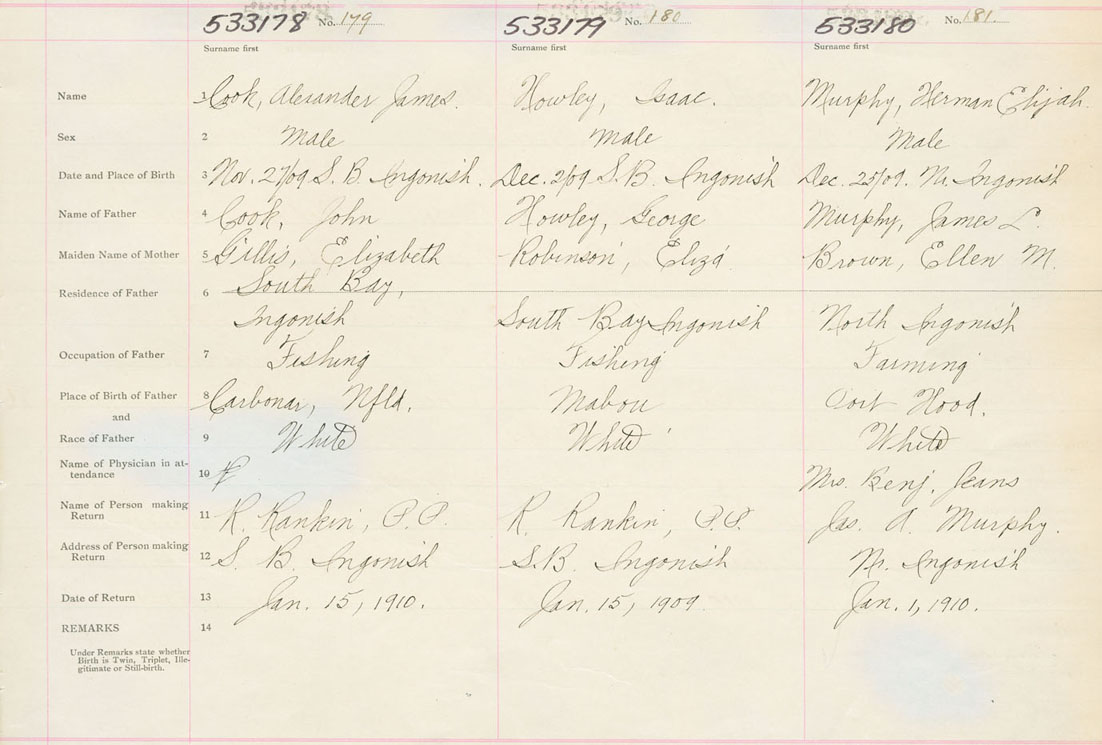 533178 No. 179 533179 No. 180 533180 No. 181
Surname first Surname first Surname first
Name 1 Cook, Alexander James. Howley, Isaac. Murphy, Herman Elijah.
Sex 2 Male Male Male
Date and Place of Birth 3 Nov. 27/09 S. B. Ingonish. Dec. 2/09 S. B. Ingonish Dec. 25/09. N. Ingonish
Name of Father 4 Cook, John Howley, George Murphy, James L.
Maiden Name of Mother 5 Gillis, Elizabeth Robinson, Eliza Brown, Ellen M.
Residence of Father 6 South Bay,
Ingonish South Bay Ingonish North Ingonish
Occupation of Father 7 Fishing Fishing Farming
Place of Birth of Father 8 Carbonar, Nfld. Mabou Port Hood.
and
Race of Father 9 White White White
Name of Physician in at-
tendance 10 Mrs. Benj. Jeans
Name of Person making
Return 11 R. Rankin, P.P. R. Rankin, P.P. Jas. A. Murphy.
Address of Person making
Return 12 S. B. Ingonish S.B. Ingonish N. Ingonish
Date of Return 13 Jan. 15, 1910. Jan. 15, 1909. Jan. 1, 1910.
REMARKS 14
Under Remarks state whether
Birth is Twin, Triplet, Ille-
gitimate or Still-birth.